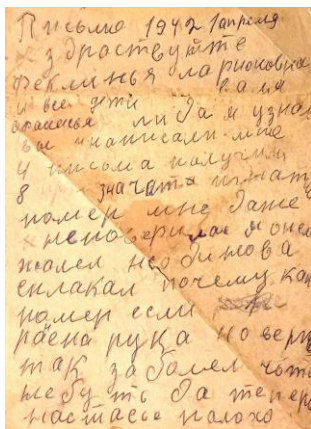 Письмо 1942 1 апреля
здраствуйте
Феклинья ларионовна
и все дети валя
лида я узнал
вы написали мне
4 письма получил
8 значата
помер мне даже
неповерилас я очен
жалел необинова
сплакал почему как
помер если
раена рука но вер
так заболел чоти
небуть да теперь
настасье плохо